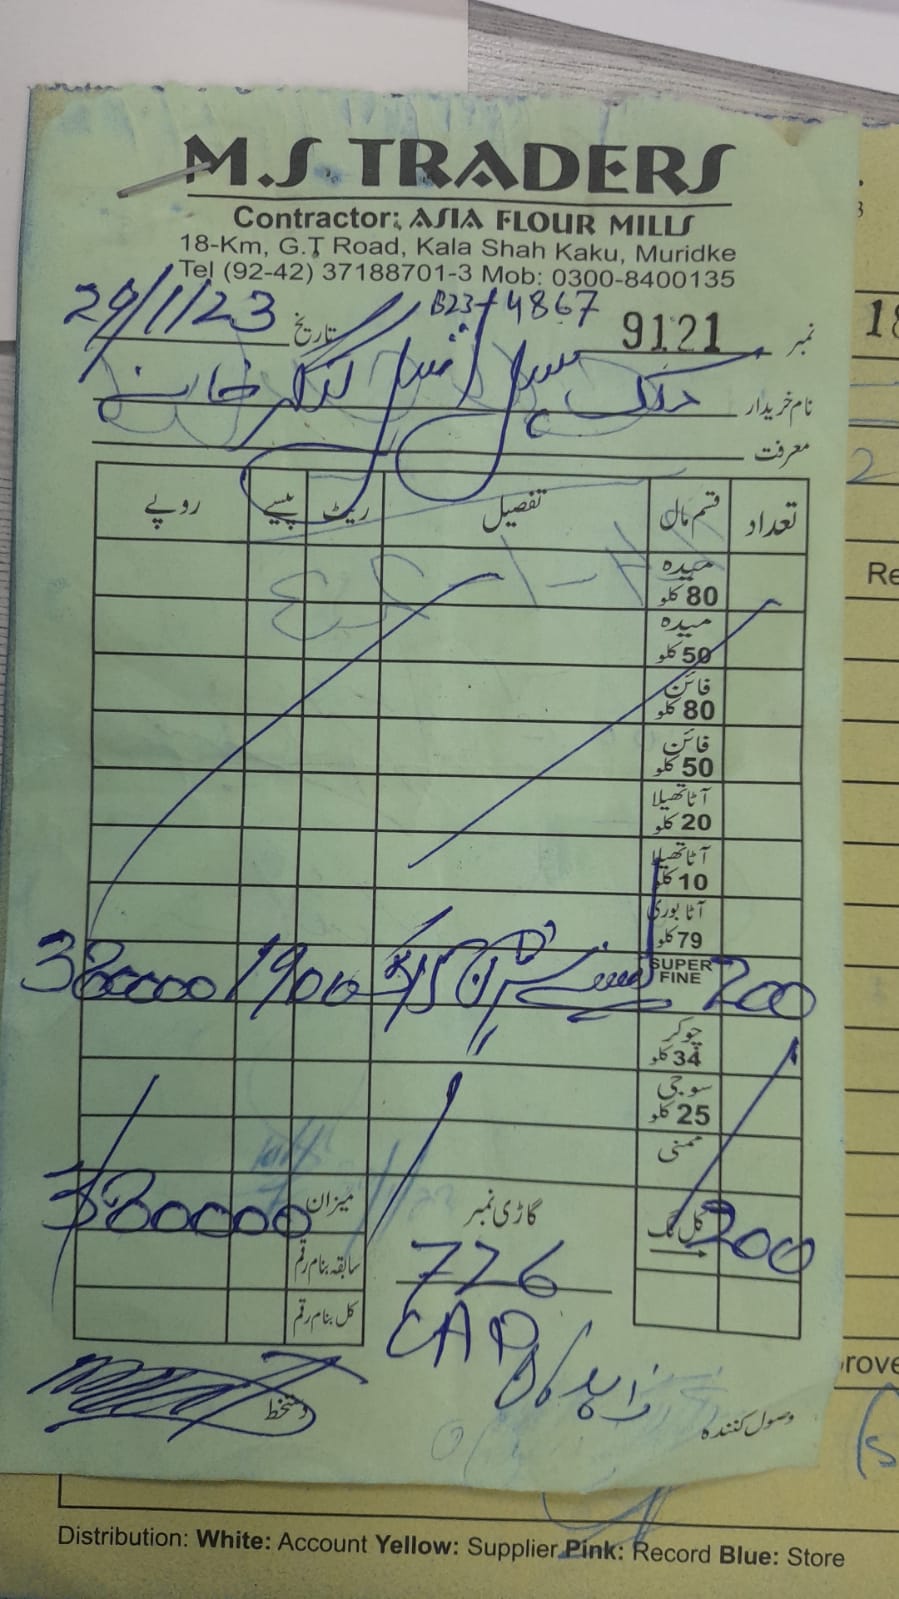 M.S TRADERS
Contractor: ASIA FLOUR MILLS
18-Km, G.T Road, Kala Shah Kaku, Muridke
Tel (92-42) 37188701-3 Mob: 0300-8400135
B23-4867
نمبر 9121 تاریخ 29/1/23
نام خریدار لنگر خانہ
معرفت
تعداد قسم مال تفصیل ریٹ پیسے روپے
میدہ
80 کلو
میدہ
50 کلو
فائن
80 کلو
فائن
50 کلو
آٹا تھیلا
20 کلو
آٹا تھیلا
10 کلو
آٹا بوری
79 کلو
200 SUPER FINE 1900 380000
چوکر
34 کلو
سوجی
25 کلو
ممنی
200 گاڑی نمبر میزان 380000
726 سابقہ بنام رقم
CAD کل بنام رقم
وصول کنندہ دستخط
Distribution: White: Account Yellow: Supplier Pink: Record Blue: Store